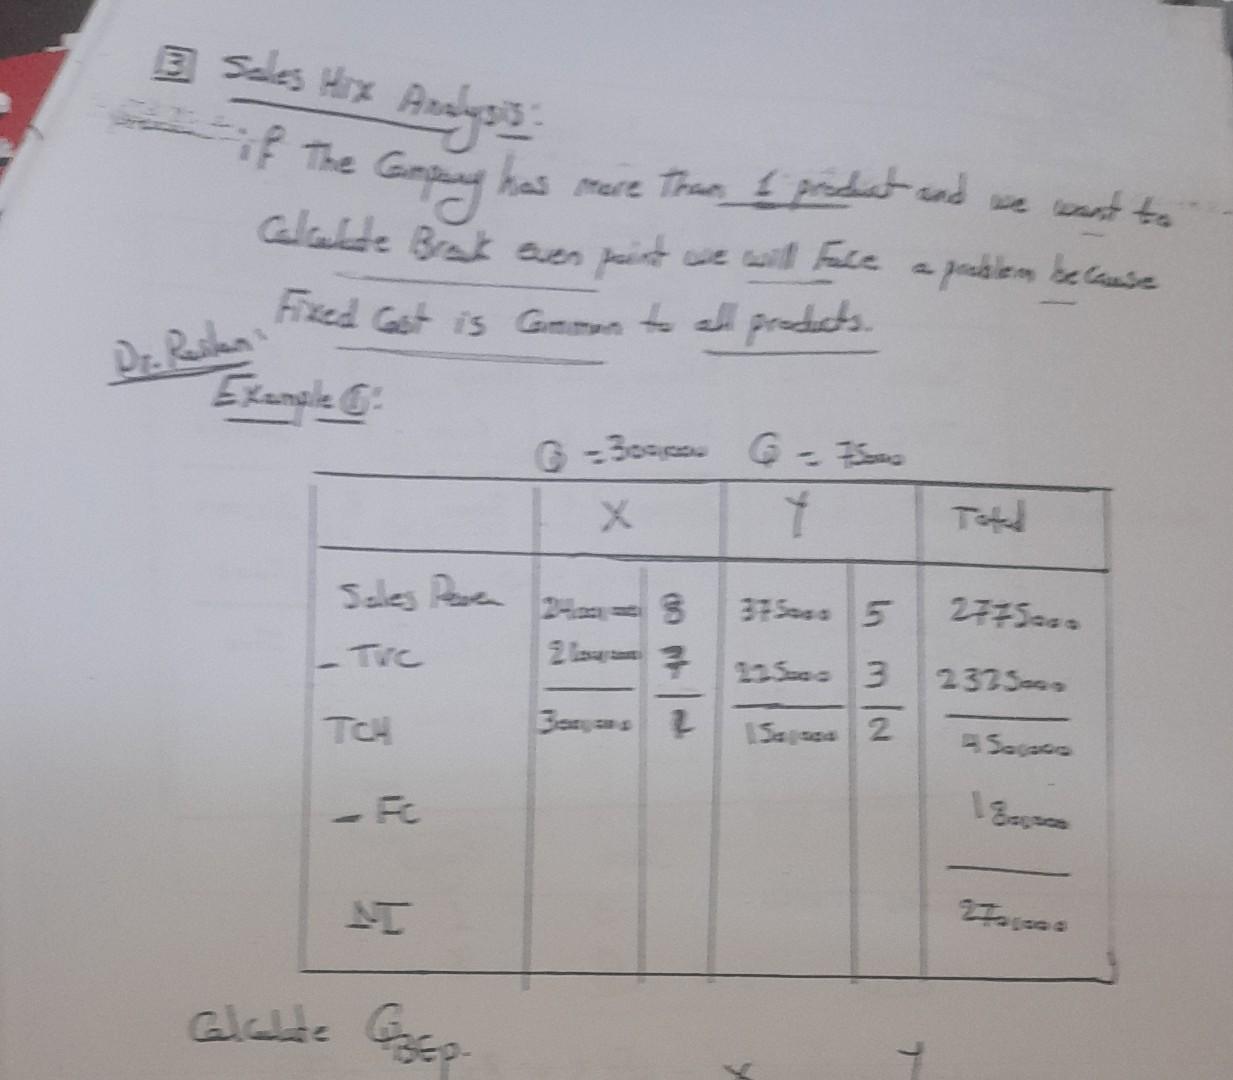 3 Sales Mix Analysis:
if The Company has more Than 1 product and we want to
Calculate Break even point we will Face a problem because
Fixed Cost is Common to all products.
Example ①:
Q = 300,000 Q = 75000
X Y Total
Sales Reven 2400,000 8 375000 5 2775000
- TVC 2100,000 7 225000 3 2325000
TCM 300,000 1 150,000 2 450,000
- FC 180,000
NI 270,000
Calculate QBEP.
X Y